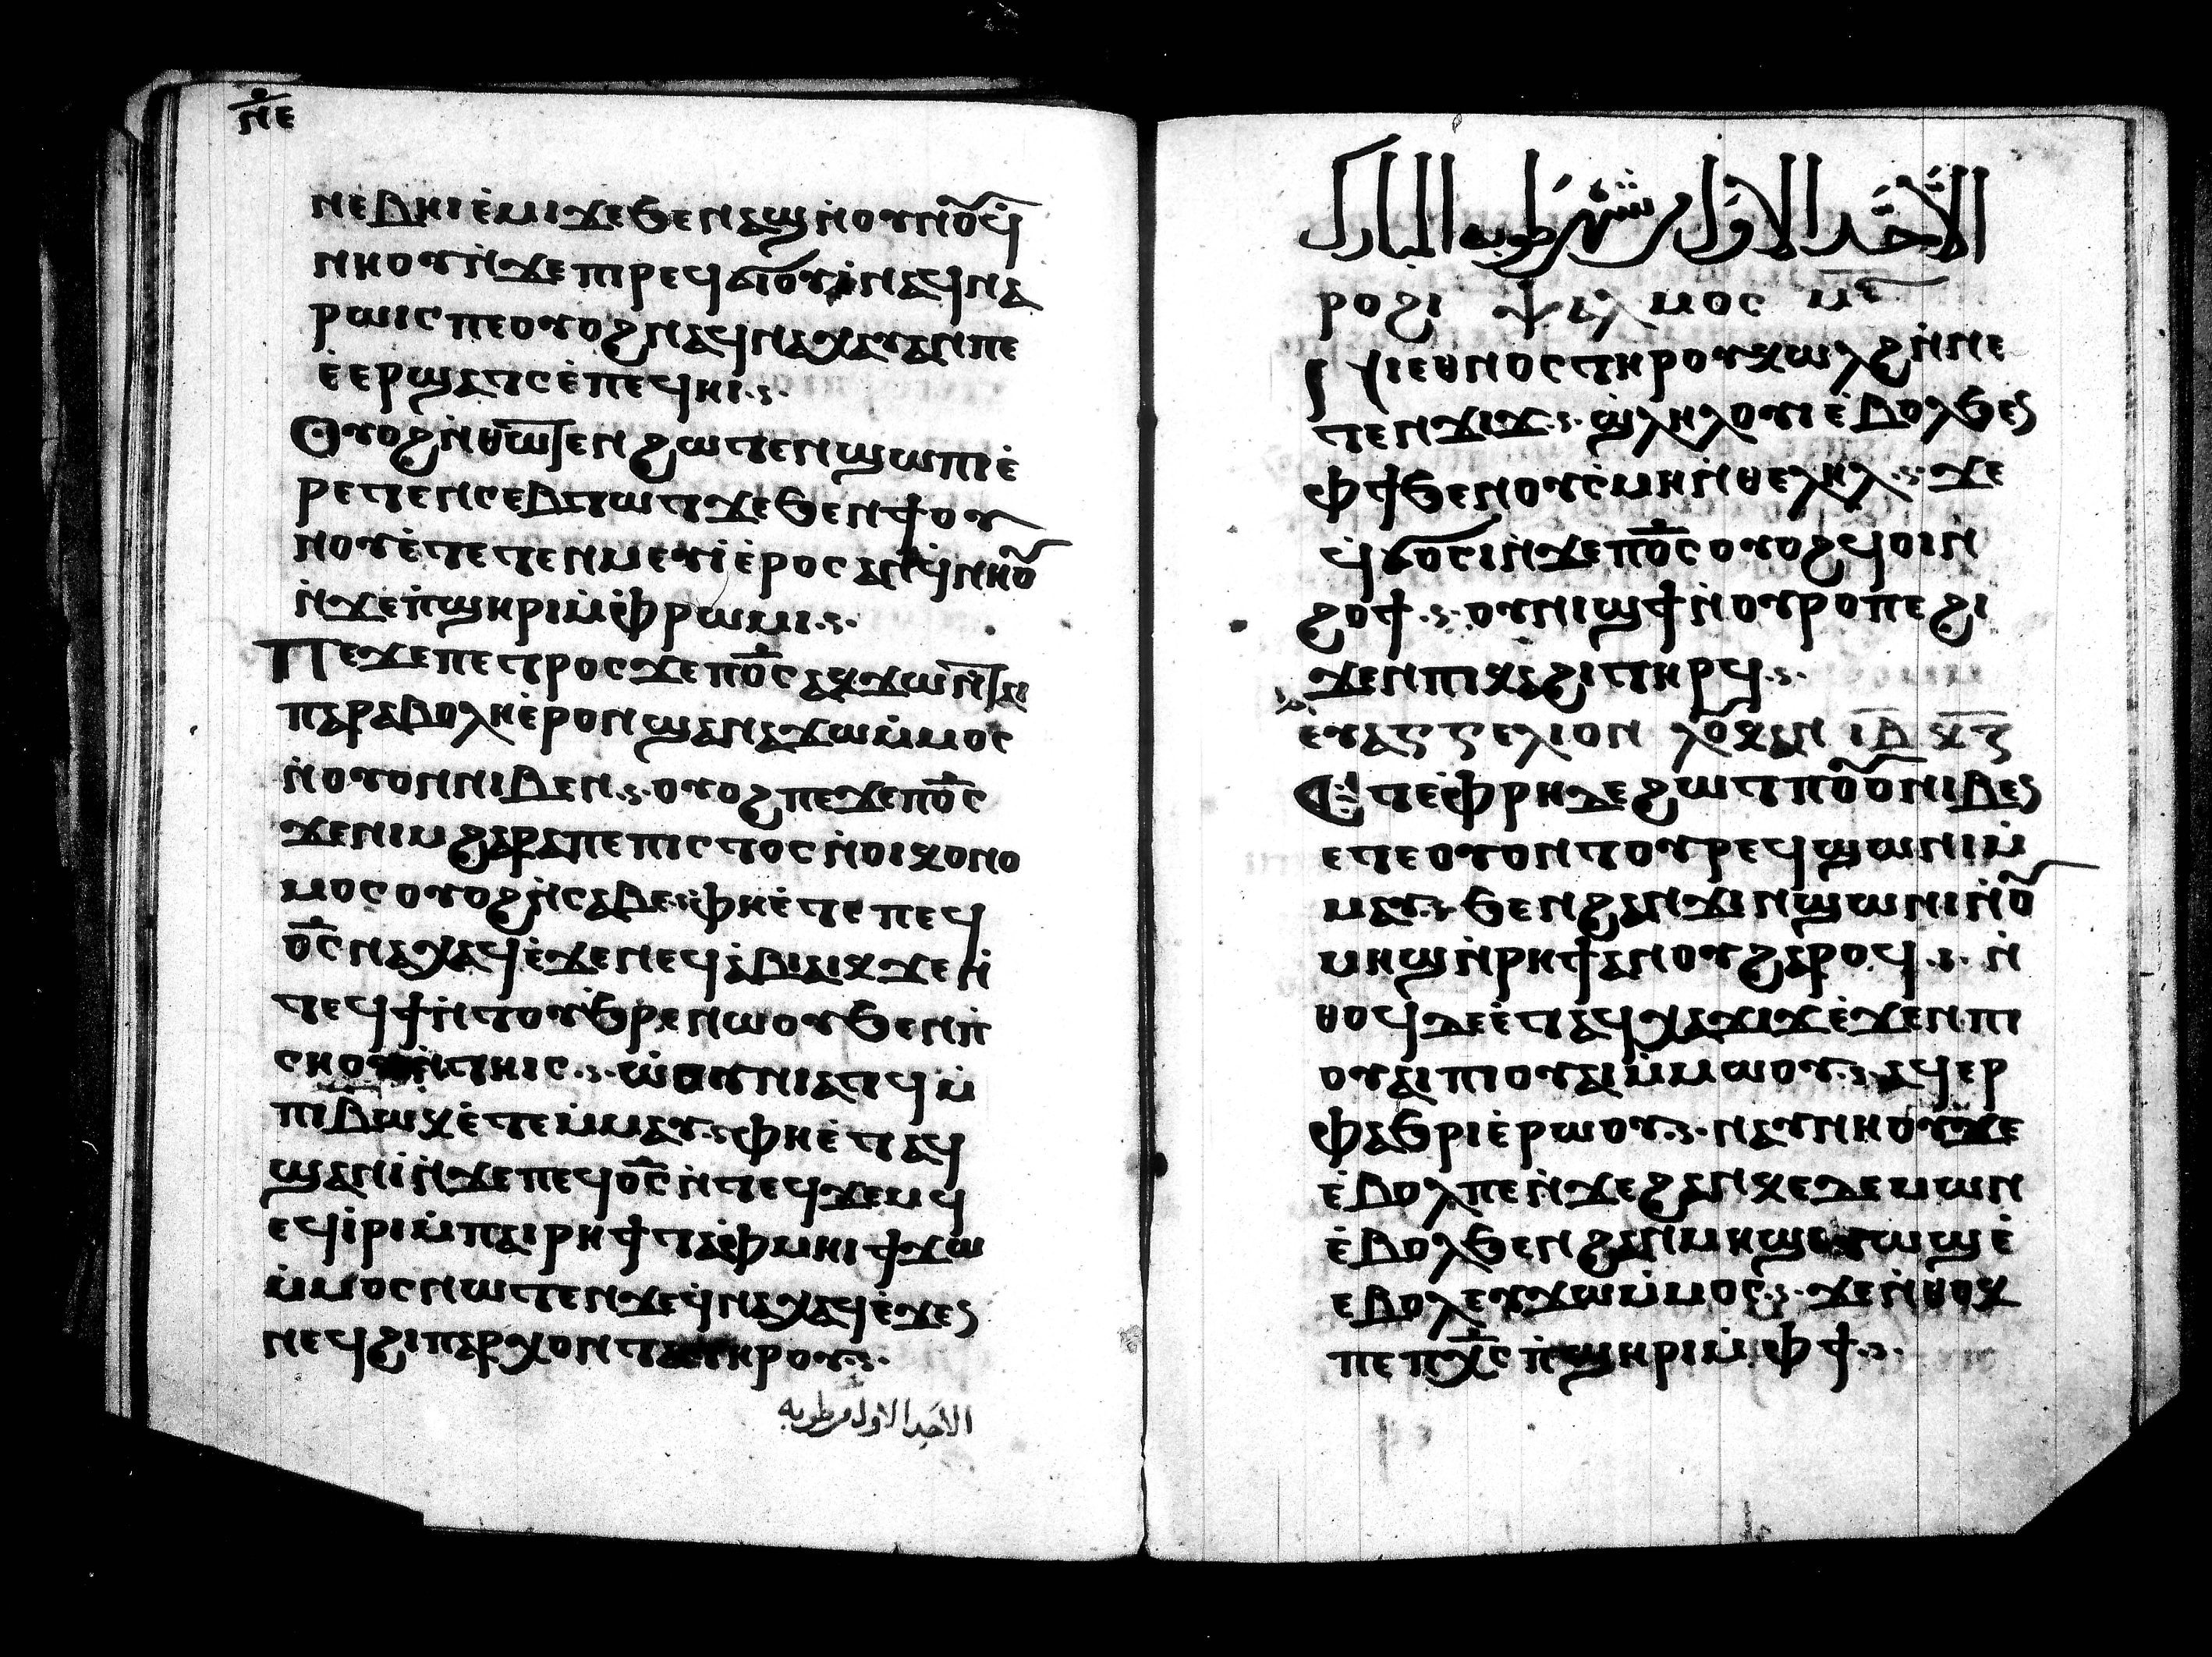 ⲛ̅ⲉ̅
ⲛⲉⲃⲏⲓ ⲉ̀ⲙⲓ ϫⲉ ϧⲉⲛ ⲁϣ ⲛ̀ⲟⲩⲛⲟⲩ ϥ̀
ⲛⲏⲟⲩ ⲛ̀ϫⲉ ⲡⲓⲣⲉϥϭⲓⲟⲩⲓ̀ ⲛⲁϥⲛⲁ
ⲣⲱⲓⲥ ⲡⲉ ⲟⲩⲟϩ ⲛⲁϥⲛⲁⲭⲁⲩ ⲁⲛ ⲡⲉ
ⲉ̀ⲉⲣϣⲁⲧⲥ ⲉ̀ⲡⲉϥⲏⲓ.
Ⲟⲩⲟϩ ⲛ̀ⲑⲱⲧⲉⲛ ϩⲱⲧⲉⲛ ϣⲱⲡⲓ ⲉ̀
ⲣⲉⲧⲉⲛⲥⲉⲃⲧⲱⲧ ϫⲉ ϧⲉⲛ ϯⲟⲩ
ⲛⲟⲩ ⲉ̀ⲧⲉⲧⲉⲛⲙⲉⲩⲓ̀ ⲉ̀ⲣⲟⲥ ⲁⲛ ϥ̀ⲛⲏⲟⲩ
ⲛ̀ϫⲉ ⲡ̀ϣⲏⲣⲓ ⲙ̀ⲫ̀ⲣⲱⲙⲓ.
Ⲡⲉϫⲉ ⲡⲉⲧⲣⲟⲥ ϫⲉ ⲡⲟ̅ⲥ̅ ⲁⲕϫⲱ ⲛ̀ⲧⲁⲓ
ⲡⲁⲣⲁⲃⲟⲗⲏ ⲉ̀ⲣⲟⲛ ϣⲁⲛ ⲁⲕϫⲱ ⲙ̀ⲙⲟⲥ
ⲛ̀ⲟⲩⲟⲛ ⲛⲓⲃⲉⲛ. ⲟⲩⲟϩ ⲡⲉϫⲉ ⲡⲟ̅ⲥ̅
ϫⲉ ⲛⲓⲙ ϩⲁⲣⲁ ⲡⲉ ⲡⲓⲡⲓⲥⲧⲟⲥ ⲛ̀ⲟⲓⲕⲟⲛⲟ
ⲙⲟⲥ ⲟⲩⲟϩ ⲛ̀ⲥⲁⲃⲉ. ⲫⲏ ⲉ̀ⲧⲉ ⲡⲉϥ
ⲟ̅ⲥ̅ ⲛⲁⲭⲁϥ ⲉ̀ϫⲉⲛ ⲛⲉϥⲉ̀ⲃⲓⲁⲓⲕ ϫⲉ ⲛ̀
ⲧⲉϥϯ ⲛ̀ⲧⲟⲩϧⲣⲉ ⲛⲱⲟⲩ ϧⲉⲛ ⲡ̀
ⲥⲏⲟⲩ ⲛ̀ⲧⲏⲓⲥ. ⲱ̀ⲟⲩⲛⲓⲁⲧϥ ⲙ̀
ⲡⲓⲃⲱⲕ ⲉ̀ⲧⲉⲙ̀ⲙⲁⲩ. ⲫⲏ ⲉ̀ⲧⲁϥ
ϣⲁⲛⲓ̀ ⲛ̀ϫⲉ ⲡⲉϥⲟ̅ⲥ̅ ⲛ̀ⲧⲉϥϫⲉⲙϥ
ⲉϥⲓ̀ⲣⲓ ⲙ̀ⲡⲁⲓⲣⲏϯ ⲧⲁⲫ̀ⲙⲏⲓ ϯϫⲱ
ⲙ̀ⲙⲟⲥ ⲛⲱⲧⲉⲛ ϫⲉ ϥ̀ⲛⲁⲭⲁϥ ⲉ̀ϫⲉⲛ
ⲛⲉϥϩⲓⲡⲁⲣⲭⲟⲛⲧⲁ ⲧⲏⲣⲟⲩ.
الاحد الاول من طوبه
الأحد الاول من شهر طوبه المبارك
ⲣⲟϩⲓ ⲯⲁⲗⲙⲟⲥ ⲙ̅ⲋ̅
Ⲛⲓⲉⲑⲛⲟⲥ ⲧⲏⲣⲟⲩ ⲕⲱⲗϩ ⲛ̀ⲛⲉ
ⲧⲉⲛϫⲓϫ. ⲉ̀ϣⲗⲏⲗⲟⲩⲓ ⲉ̀ⲃⲟⲗ ϧⲉⲛ
ⲫϯ ϧⲉⲛ ⲟⲩⲥ̀ⲙⲏ ⲛ̀ⲑⲉⲗⲏⲗ. ϫⲉ
ϥ̀ϭⲟⲥⲓ ⲛ̀ϫⲉ ⲡⲟ̅ⲥ̅ ⲟⲩⲟϩ ϥⲟⲓ ⲛ̀
ϩⲟϯ. ⲟⲩⲛⲓϣϯ ⲛ̀ⲟⲩⲣⲟ ⲡⲉ ϩⲓ
ϫⲉⲛ ⲡⲓⲕⲁϩⲓ ⲧⲏⲣϥ.
ⲉⲩⲁⲅⲅⲉⲗⲓⲟⲛ ⲗⲟⲩⲕⲁⲛ ⲓ̅ⲃ̅ ⲕ̅ⲋ̅
Ⲉⲧⲉⲙ̀ⲫ̀ⲣⲏ ⲇⲉ ϩⲱⲧⲡ ⲟⲩⲟⲛ ⲛⲓⲃⲉⲛ
ⲉⲧⲉ ⲟⲩⲟⲛⲧⲟⲩ ⲣⲉϥϣⲱⲛⲓ ⲙ̀
ⲙⲁⲩ. ϧⲉⲛ ϩⲁⲛϫⲓⲛϣⲱⲛⲓ ⲛ̀ⲟⲩ
ⲙⲏϣ ⲛ̀ⲣⲏϯ ⲁⲛⲟⲩ ϩⲁⲣⲟϥ. ⲛ̀
ⲑⲟϥ ⲇⲉ ⲉ̀ⲧⲁϥⲭⲁϫⲓϫ ⲉ̀ϫⲉⲛ ⲡⲓ
ⲟⲩⲁⲓ ⲡⲓⲟⲩⲁⲓ ⲙ̀ⲙⲱⲟⲩ. ⲁϥⲉⲣ
ⲫⲁϧⲣⲓ ⲉ̀ⲣⲱⲟⲩ. ⲛⲁⲩⲛⲏⲟⲩ ⲇⲉ
ⲉ̀ⲃⲟⲗ ⲡⲉ ⲛ̀ϫⲉ ϩⲁⲛⲕⲉⲇⲉⲙⲱⲛ
ⲉ̀ⲃⲟⲗ ϧⲉⲛ ϩⲁⲛⲙⲏϣ ⲉⲩⲱϣ ⲉ̀
ⲉⲃⲟⲗ ⲉⲩϫⲱ ⲙ̀ⲙⲟⲥ. ϫⲉ ⲛ̀ⲑⲟⲕ
ⲡⲉ ⲡⲭ̅ⲥ̅ ⲡ̀ϣⲏⲣⲓ ⲙ̀ⲫϯ.